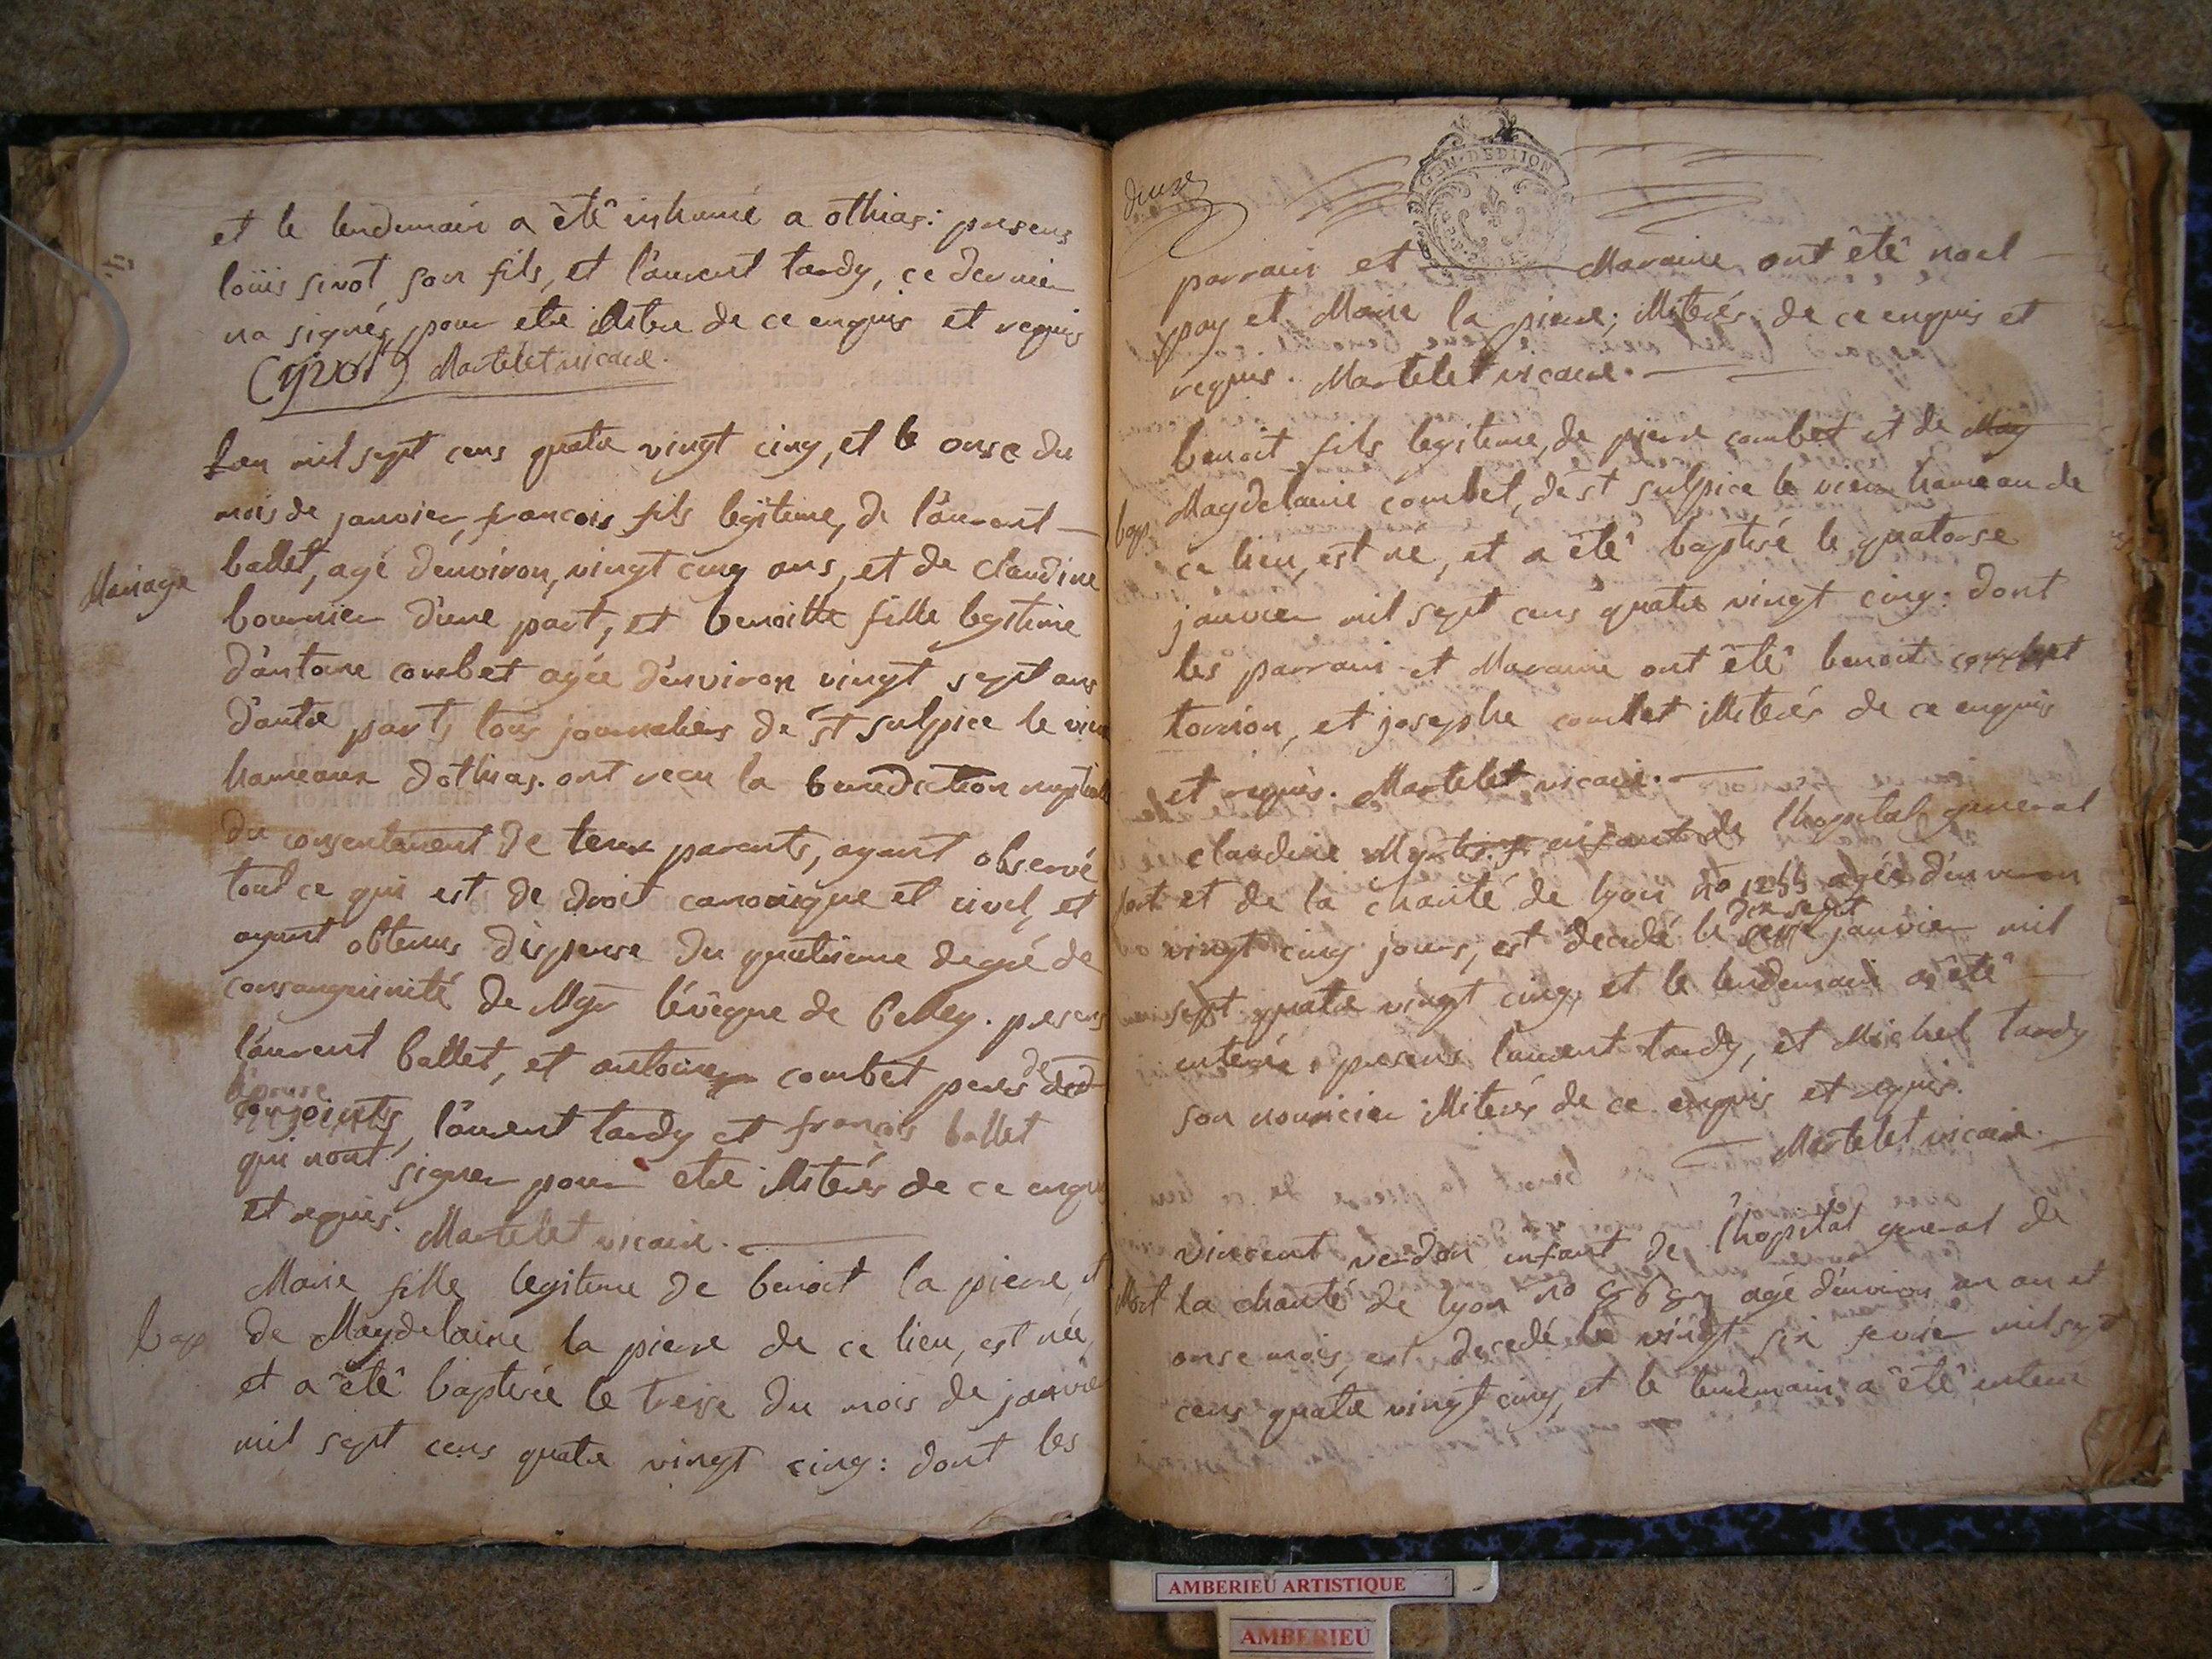 et le lendemain a êtê inhumé a othias: presens
loüis sivot son fils, et l'aurent tardy, ce dernier
na signés pour etre illitere de ce enquis et requis
Martelet vicaire.
Lan mil sept cens quatre vingt cinq, et le onse du
mois de janvier francois fils legitime, de l'aurent
Mariage
ballet, agé d'environ, vingt cinq ans, et de claudine
bournier d'une part, et benoitte fille legitime
d'antoine combet agée d'environ vingt sept ans
d'autre part, tous journaliers de st sulpice le vieux
hameaux d'othias. ont recu la benediction nuptiale
du consentement de leurs parents, ayant observé
tout ce qui est de droit canonique et civel, et
ayant obtenus dispense du quatrieme degré de
consanguinité de Mgr l'évêque de belley. presens
l'aurent ballet, et antoine combet peres de
conjoints, l'aurent tardy et françois ballet
qui n'ont signer pour etre illiterés de ce enquis
et requis. Martelet vicaire.
Marie fille legitime de benoit la pierre, et
bap de Magdelaine la piere de ce lieu, est née,
et a êtê baptisée le treise du mois de janvier
mil sept cens quatre vingt cinq: dont les
GEN·DE DIJON
parrain et Maraine ont êtê noel
pay et Marie la pierre; illiterés de ce enquis et
requis. Martelet vicaire.
benoit fils legitime, de pierre combet et de Mag
bap. Magdelaine combet, de st sulpice le vieux hameau de
ce lieu, est né, et a êtê baptisé le quatorse
janvier mil sept cens quatre vingt cinq. dont
les parrain et Maraine ont êtê benoit combet
tonion, et josephe combet illiterés de ce enquis
et requis. Martelet vicaire.
claudine enfant de l'hopital general
et de la charité de lyon no agée d'environ
dix sept
vingt cinq jours, est decedé le janvier mil
sept quatre vingt cinq, et le lendemain a êtê
enterée. presens l'aurent tardy, et Michel tardy
son nourricier illiterés de ce enquis et requis.
Martelet vicaire.
vincent verdon enfant de l'hopital general de
Mort la charité de lyon no agé d'environ un an et
onse mois, est decedé le vingt six fevrier mil sept
cens quatre vingt cinq, et le lendemain a êtê enteré
AMBERIEU ARTISTIQUE
AMBERIEU